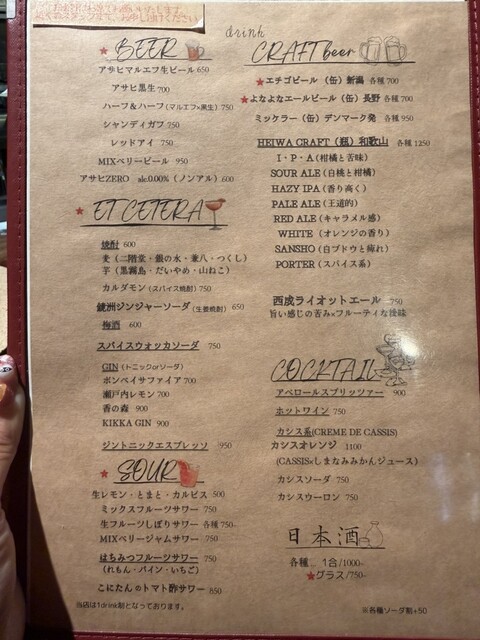 drink
★BEER
アサヒマルエフ生ビール 650
アサヒ黒生 700
ハーフ＆ハーフ(マルエフ×黒生) 750
シャンディガフ 750
レッドアイ 750
MIXベリービール 950
アサヒZERO alc.0.00%（ノンアル）600
★ET CETERA
焼酎 600
麦（二階堂・銀の水・兼八・つくし）
芋（黒霧島・だいやめ・山ねこ）
カルダモン（スパイス焼酎）750
ジンジャーソーダ（生姜焼酎）650
梅酒 600
スパイスウォッカソーダ 750
GIN（トニックorソーダ）
ボンベイサファイア 700
瀬戸内レモン 700
香の森 900
KIKKA GIN 900
ジントニックエスプレッソ 950
★SOUR
生レモン・とまと・カルピス 500
ミックスフルーツサワー 750
生フルーツしぼりサワー 各種 750
MIXベリージャムサワー 750
はちみつフルーツサワー 750
（れもん・パイン・いちご）
こにたんのトマト酢サワー 850
当店は1drink制となっております。
CRAFT beer
★エチゴビール（缶）新潟 各種 700
★よなよなエールビール（缶）長野 各種 700
ミッケラー（缶）デンマーク発 各種 950
HEIWA CRAFT（瓶）和歌山 各種 1250
I・P・A（柑橘と苦味）
SOUR ALE（白桃と柑橘）
HAZY IPA（香り高く）
PALE ALE（王道的）
RED ALE（キャラメル感）
WHITE （オレンジの香り）
SANSHO（白ブドウと痺れ）
PORTER（スパイス系）
西成ライオットエール 750
旨い感じの苦み×フルーティな後味
COCKTAIL
アペロールスプリッツァー 900
ホットワイン 750
カシス系(CREME DE CASSIS)
カシスオレンジ 1100
(CASSIS×しまなみみかんジュース）
カシスソーダ 750
カシスウーロン 750
日本酒
各種.. 1合/1000~
★グラス/750~
※各種ソーダ割+50